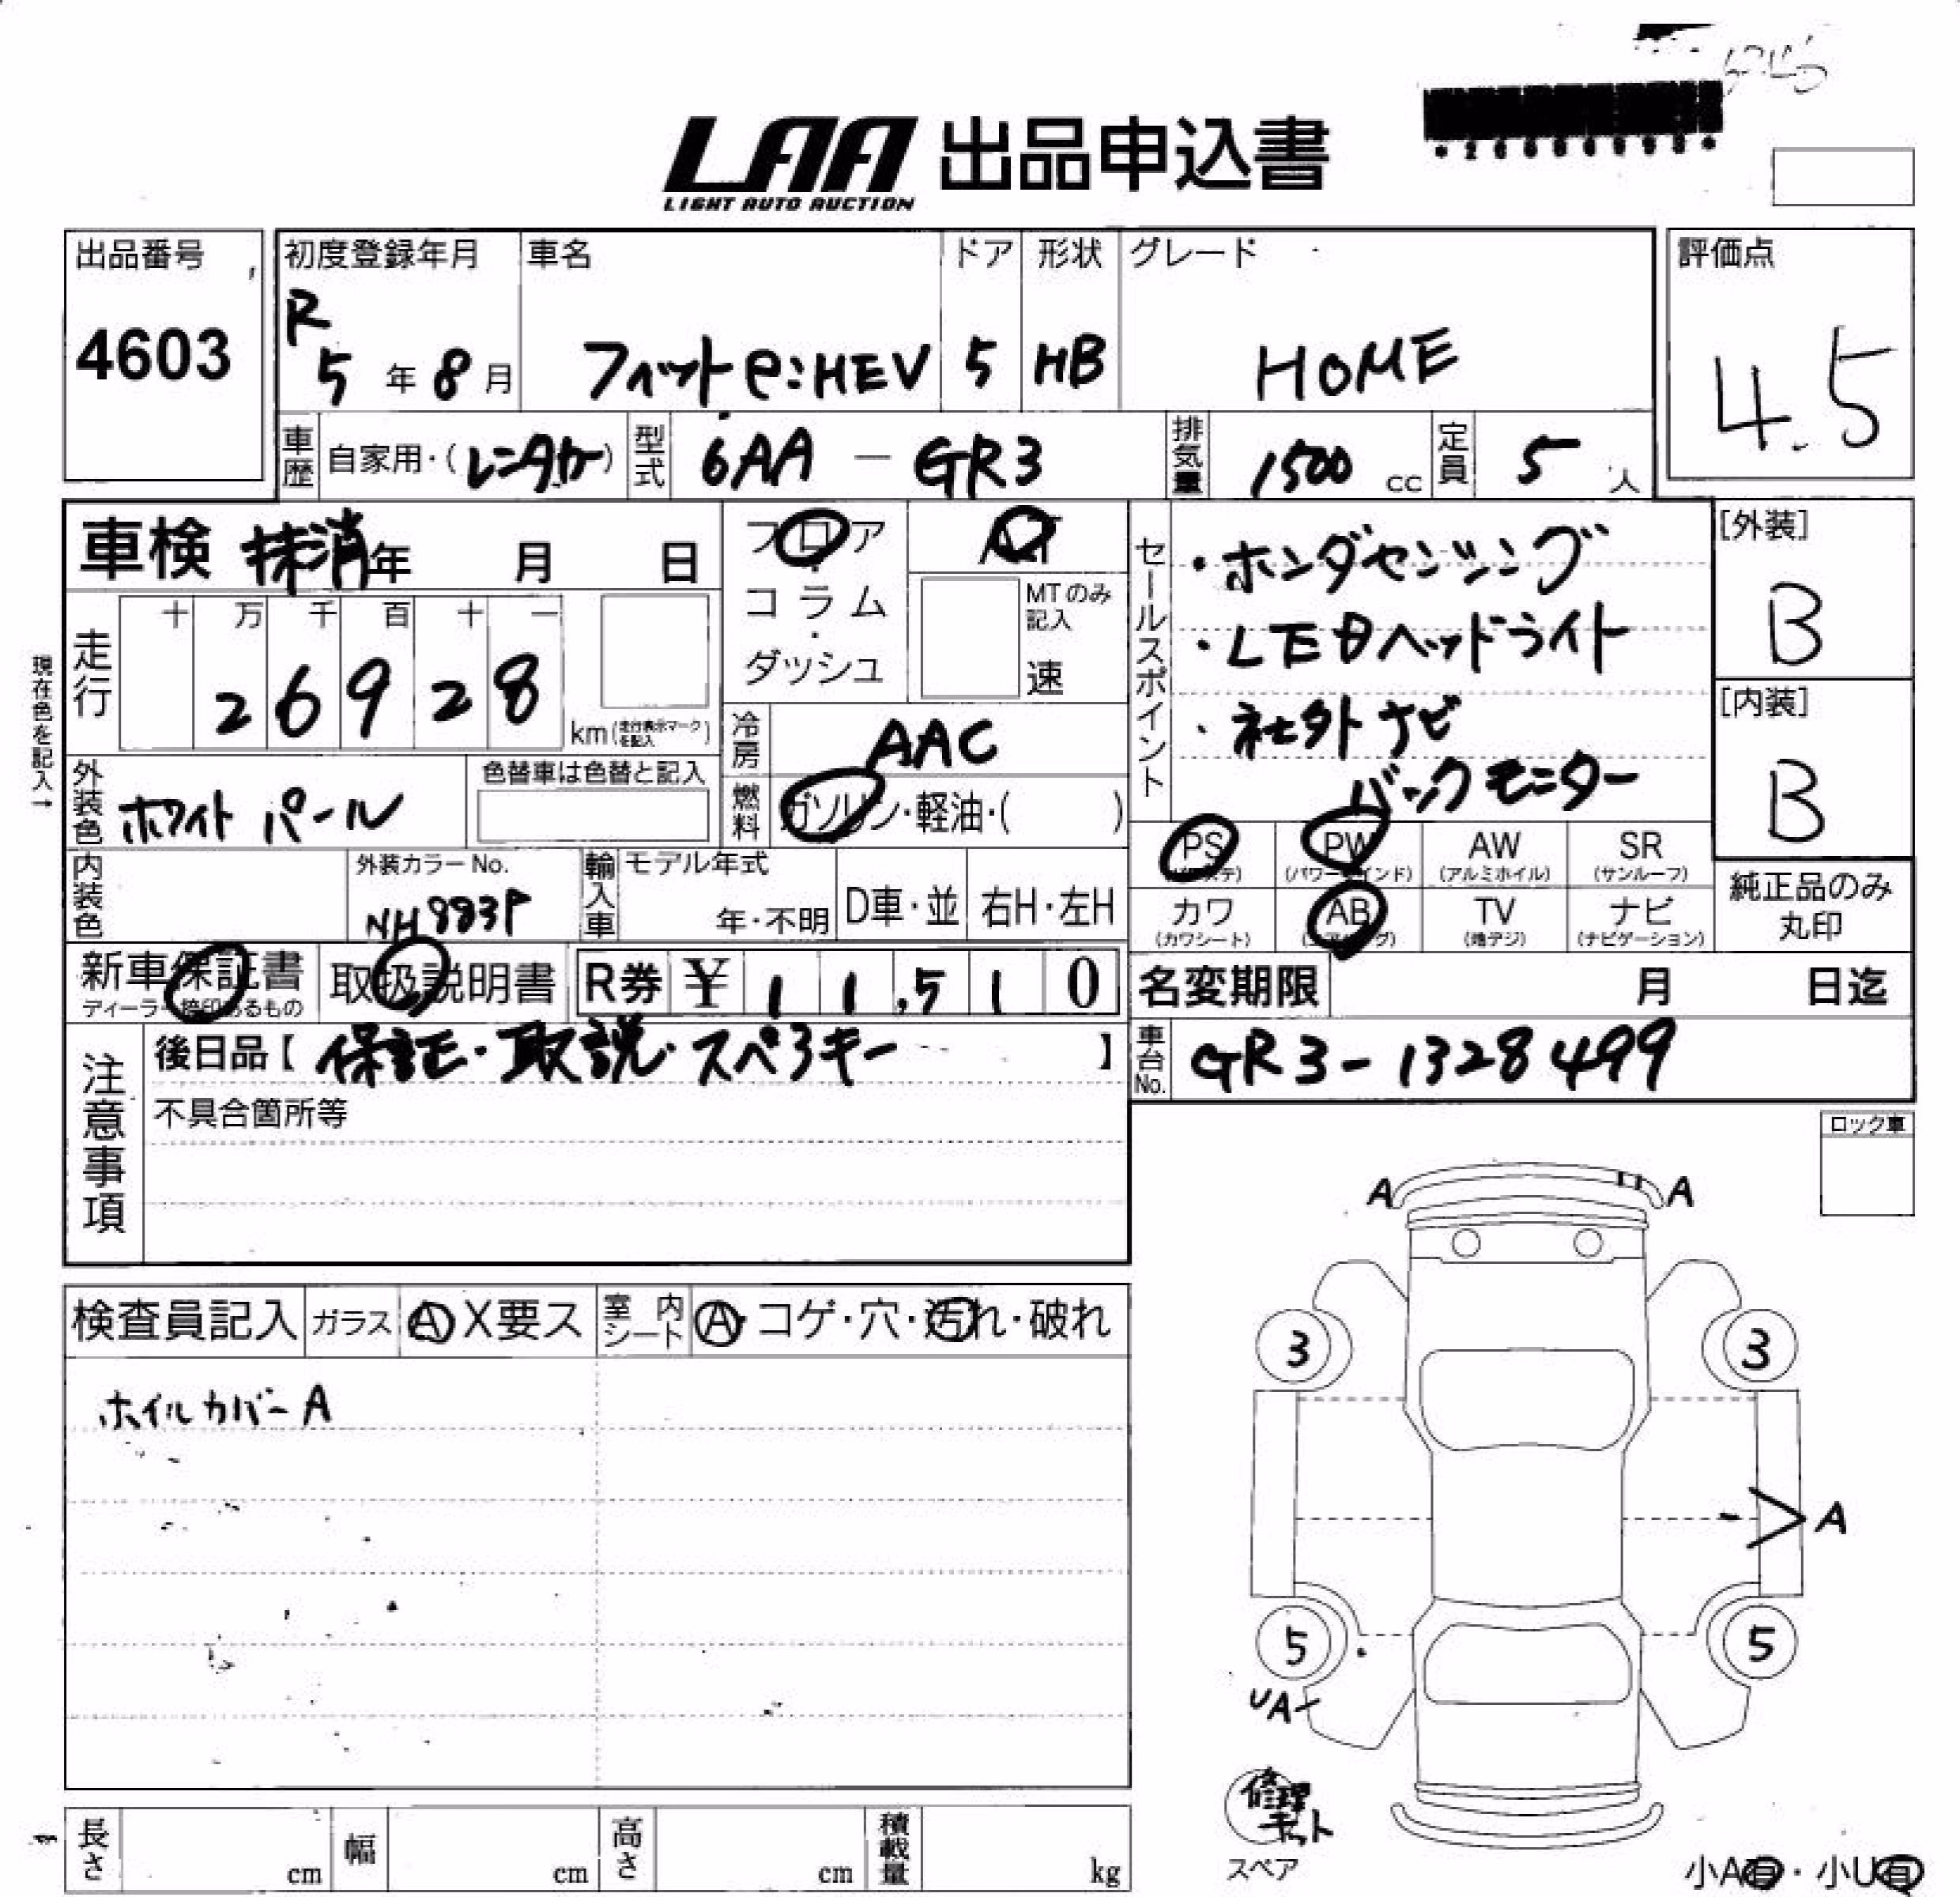 LAA 出品申込書
LIGHT AUTO AUCTION
出品番号
4603
初度登録年月
R
5 年 8 月
車名
フィットe:HEV
ドア
5
形状
HB
グレード
HOME
評価点
4.5
車歴 自家用・(レンタカー)
型式 6AA - GR3
排気量 1500 cc
定員 5 人
車検 抹消 年 月 日
走行
十 万 千 百 十 一
2 6 9 2 8
km (走行表示マークを記入)
現在色を記入→
外装色 ホワイトパール
色替車は色替と記入
内装色
外装カラーNo.
NH883P
フロア
・
コラム
・
ダッシュ
AT
MTのみ記入
速
冷房 AAC
燃料 ガソリン・軽油・( )
輸入車
モデル年式
年・不明
D車・並
右H・左H
セールスポイント
・ホンダセンシング
・LEDヘッドライト
・社外ナビ
バックモニター
[外装]
B
[内装]
B
PS
PW
(パワーウインド)
AW
(アルミホイル)
SR
(サンルーフ)
カワ
(カワシート)
AB
TV
(地デジ)
ナビ
(ナビゲーション)
純正品のみ
丸印
新車保証書
ディーラー捺印あるもの
取扱説明書
R券 ¥ 1 1,5 1 0
名変期限 月 日迄
車台No. GR3-1328499
注意事項
後日品【 保証・取説・スペアキー 】
不具合箇所等
ロック車
検査員記入
ガラス A X要ス
室内シート A・コゲ・穴・汚れ・破れ
ホイルカバーA
A A
3 3
A
5 5
UA
修理キット
スペア
小A有・小U有
長さ cm
幅 cm
高さ cm
積載量 kg